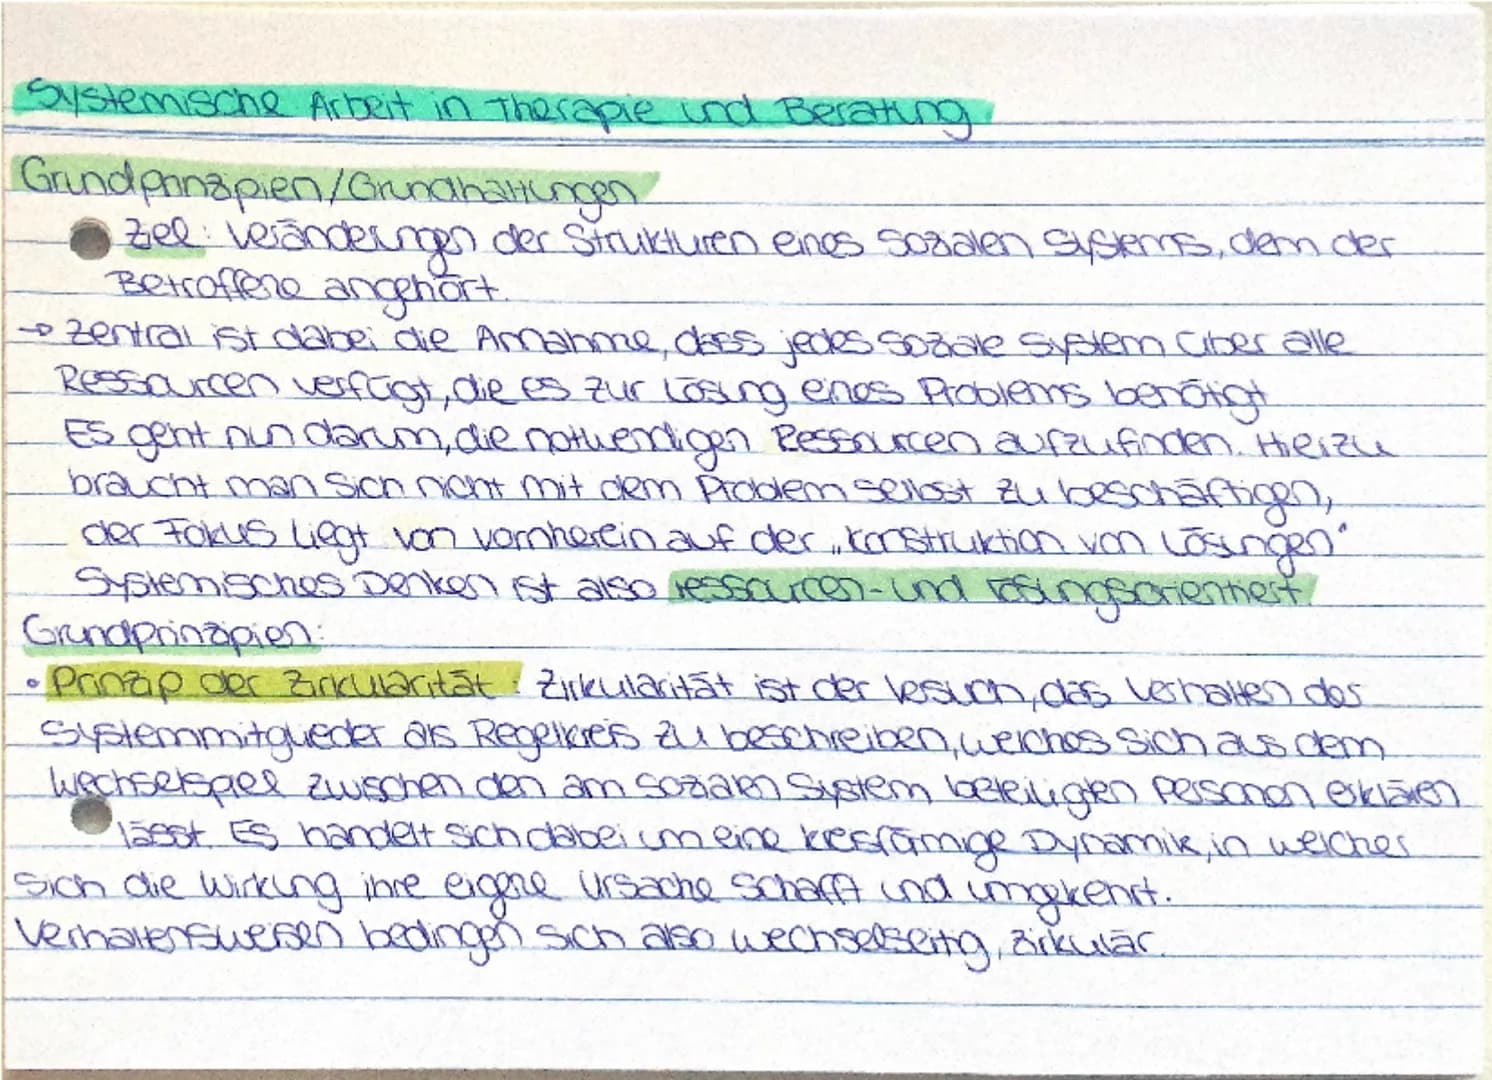 Systemische Arbeit in Therapie und Beratung
Grundprinzipien/Grundhaltungen
Ziel: Veränderungen der Strukturen eines sozialen Systems, dem der
Betroffene angehört.
→ Zentral ist dabei die Annahme, dass jedes soziale System über alle
Ressourcen verfügt, die es zur Lösung eines Problems benötigt
Es geht nun darum, die notwendigen Ressourcen aufzufinden. Hierzu
braucht man sich nicht mit dem Problem selbst zu beschäftigen,
der Fokus liegt von vornherein auf der „Konstruktion von Lösungen“
Systemisches Denken ist also ressourcen- und lösungsorientiert.
Grundprinzipien:
• Prinzip der Zirkularität: Zirkularität ist der Versuch, das Verhalten der
Systemmitglieder als Regelkreis zu beschreiben, welches sich aus dem
Wechselspiel zwischen den am sozialen System beteiligten Personen erklären
lässt. Es handelt sich dabei um eine kreisförmige Dynamik, in welcher
sich die Wirkung ihre eigene Ursache schafft und umgekehrt.
Verhaltensweisen bedingen sich also wechselseitig, zirkulär.